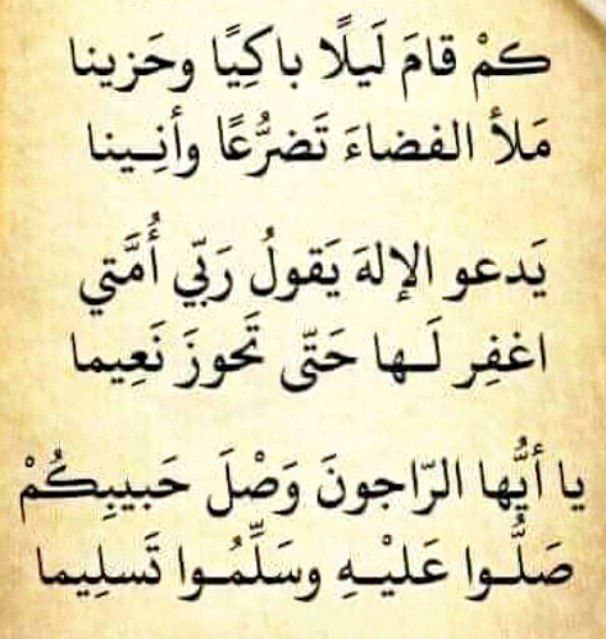 كمْ قامَ لَيلًا باكِيًا وحَزينا
مَلأ الفضاءَ تَضرُّعًا وأنِـينا
يَدعو الإلهَ يَقولُ رَبّي أُمَّتي
اغفِر لَـها حَتّى تَحوزَ نَعِيما
يا أيُّها الرّاجونَ وَصْلَ حَبيبِكُمْ
صَلُّـوا عَليْـهِ وسَلِّمُـوا تَسلِيما